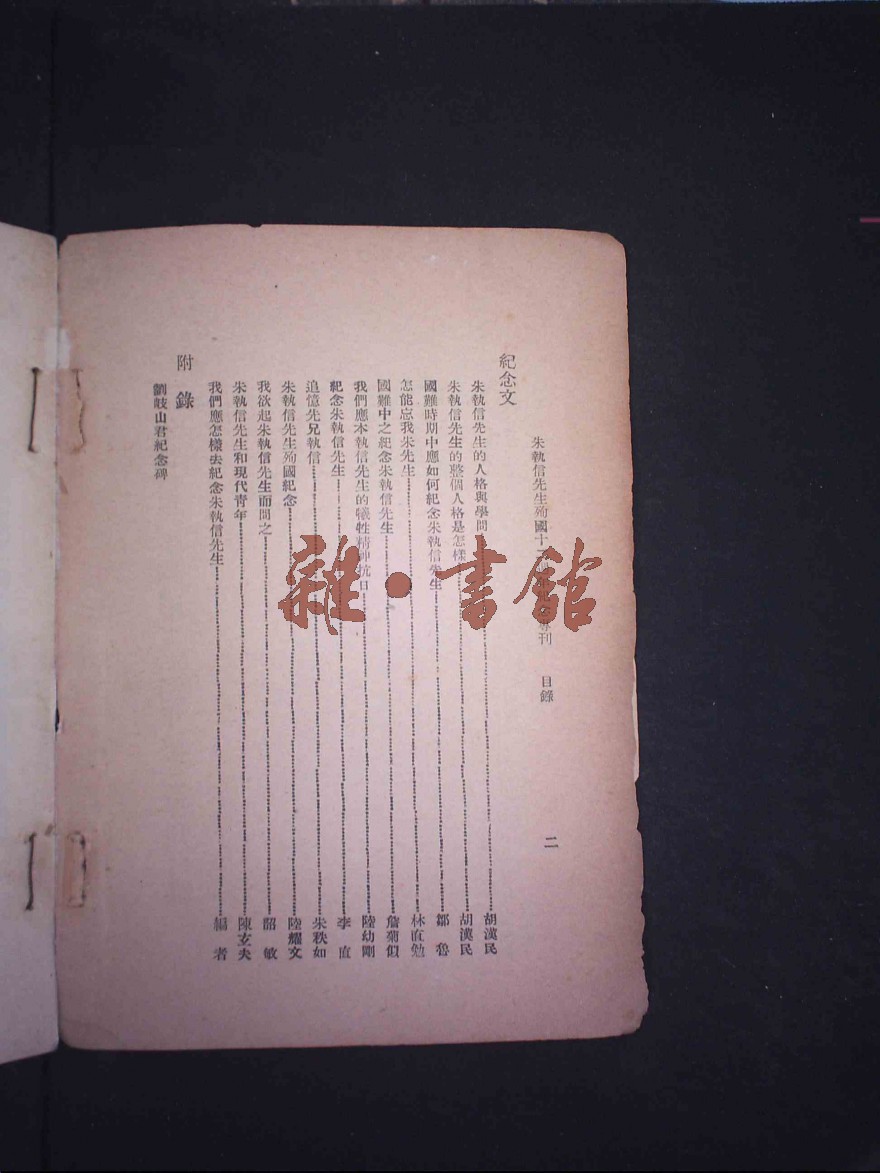 朱執信先生殉國十二 刊 目錄 二
紀念文
朱執信先生的人格與學問……胡漢民
朱執信先生的整個人格是怎樣……胡漢民
國難時期中應如何紀念朱執信先生……鄒 魯
怎能忘我朱先生……林直勉
國難中之紀念朱執信先生……詹菊似
我們應本執信先生的犧牲精神抗日……陸幼剛
紀念朱執信先生……李 直
追憶先兄執信……朱秩如
朱執信先生殉國紀念……陸耀文
我欲起朱執信先生而問之……韶 敏
朱執信先生和現代青年……陳玄夫
我們應怎樣去紀念朱執信先生……編 者
附 錄
劉岐山君紀念碑
雜·書館